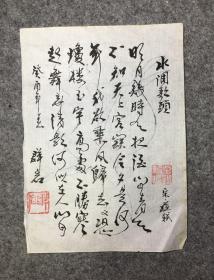 水调歌头
明月几时有把酒问青天
不知天上宫阙今夕是何
年我欲乘风归去又恐
琼楼玉宇高处不胜寒
起舞弄清影何似在人间
癸酉年